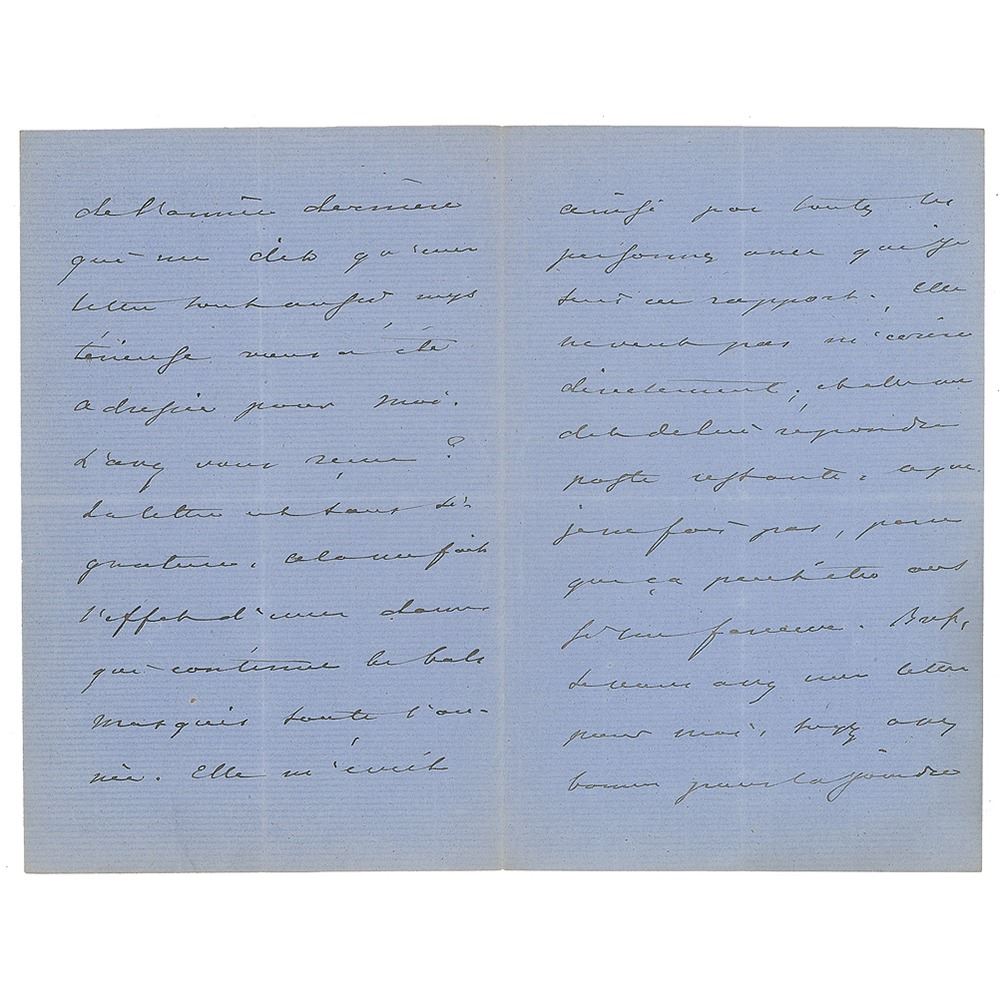 de l'année dernière
qui me dit qu'une
lettre tout aussi mys
térieuse vous a été
adressée pour moi.
L'avez vous reçue ?
La lettre est sans si-
gnature, cela me fait
l'effet d'une dame
qui continue les bals
masqués toute l'an-
née. Elle m'écrit
ainsi par toutes les
personnes avec qui je
suis en rapport. Elle
ne veut pas m'écrire
directement, et elle me
dit de lui répondre
poste restante, ce que
je ne fais pas, parce
que ça peut être aussi
une farceuse. Bref,
si vous avez une lettre
pour moi, soyez assez
bonne pour la joindre